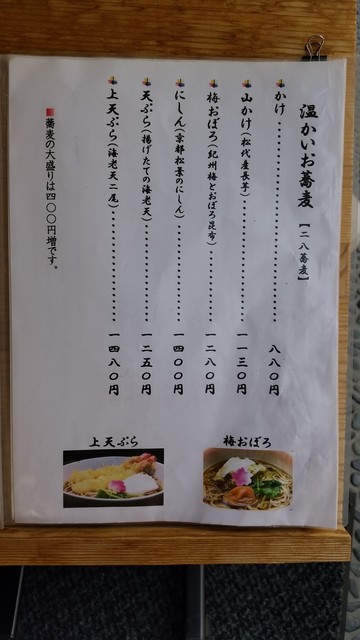 温かいお蕎麦【二八蕎麦】
かけ・・・・・・・・・・・・・・・・・・・・・・八八〇円
山かけ(松代産長芋)・・・・・・・・・・一一三〇円
梅おぼろ(紀州梅とおぼろ昆布)・・・・・・・・一二八〇円
にしん(京都松葉のにしん)・・・・・・・・・・一四〇〇円
天ぷら(揚げたての海老天)・・・・・・・・・・一二五〇円
上天ぷら(海老天二尾)・・・・・・・・・・一四八〇円
■蕎麦の大盛りは四〇〇円増です。
梅おぼろ
上天ぷら